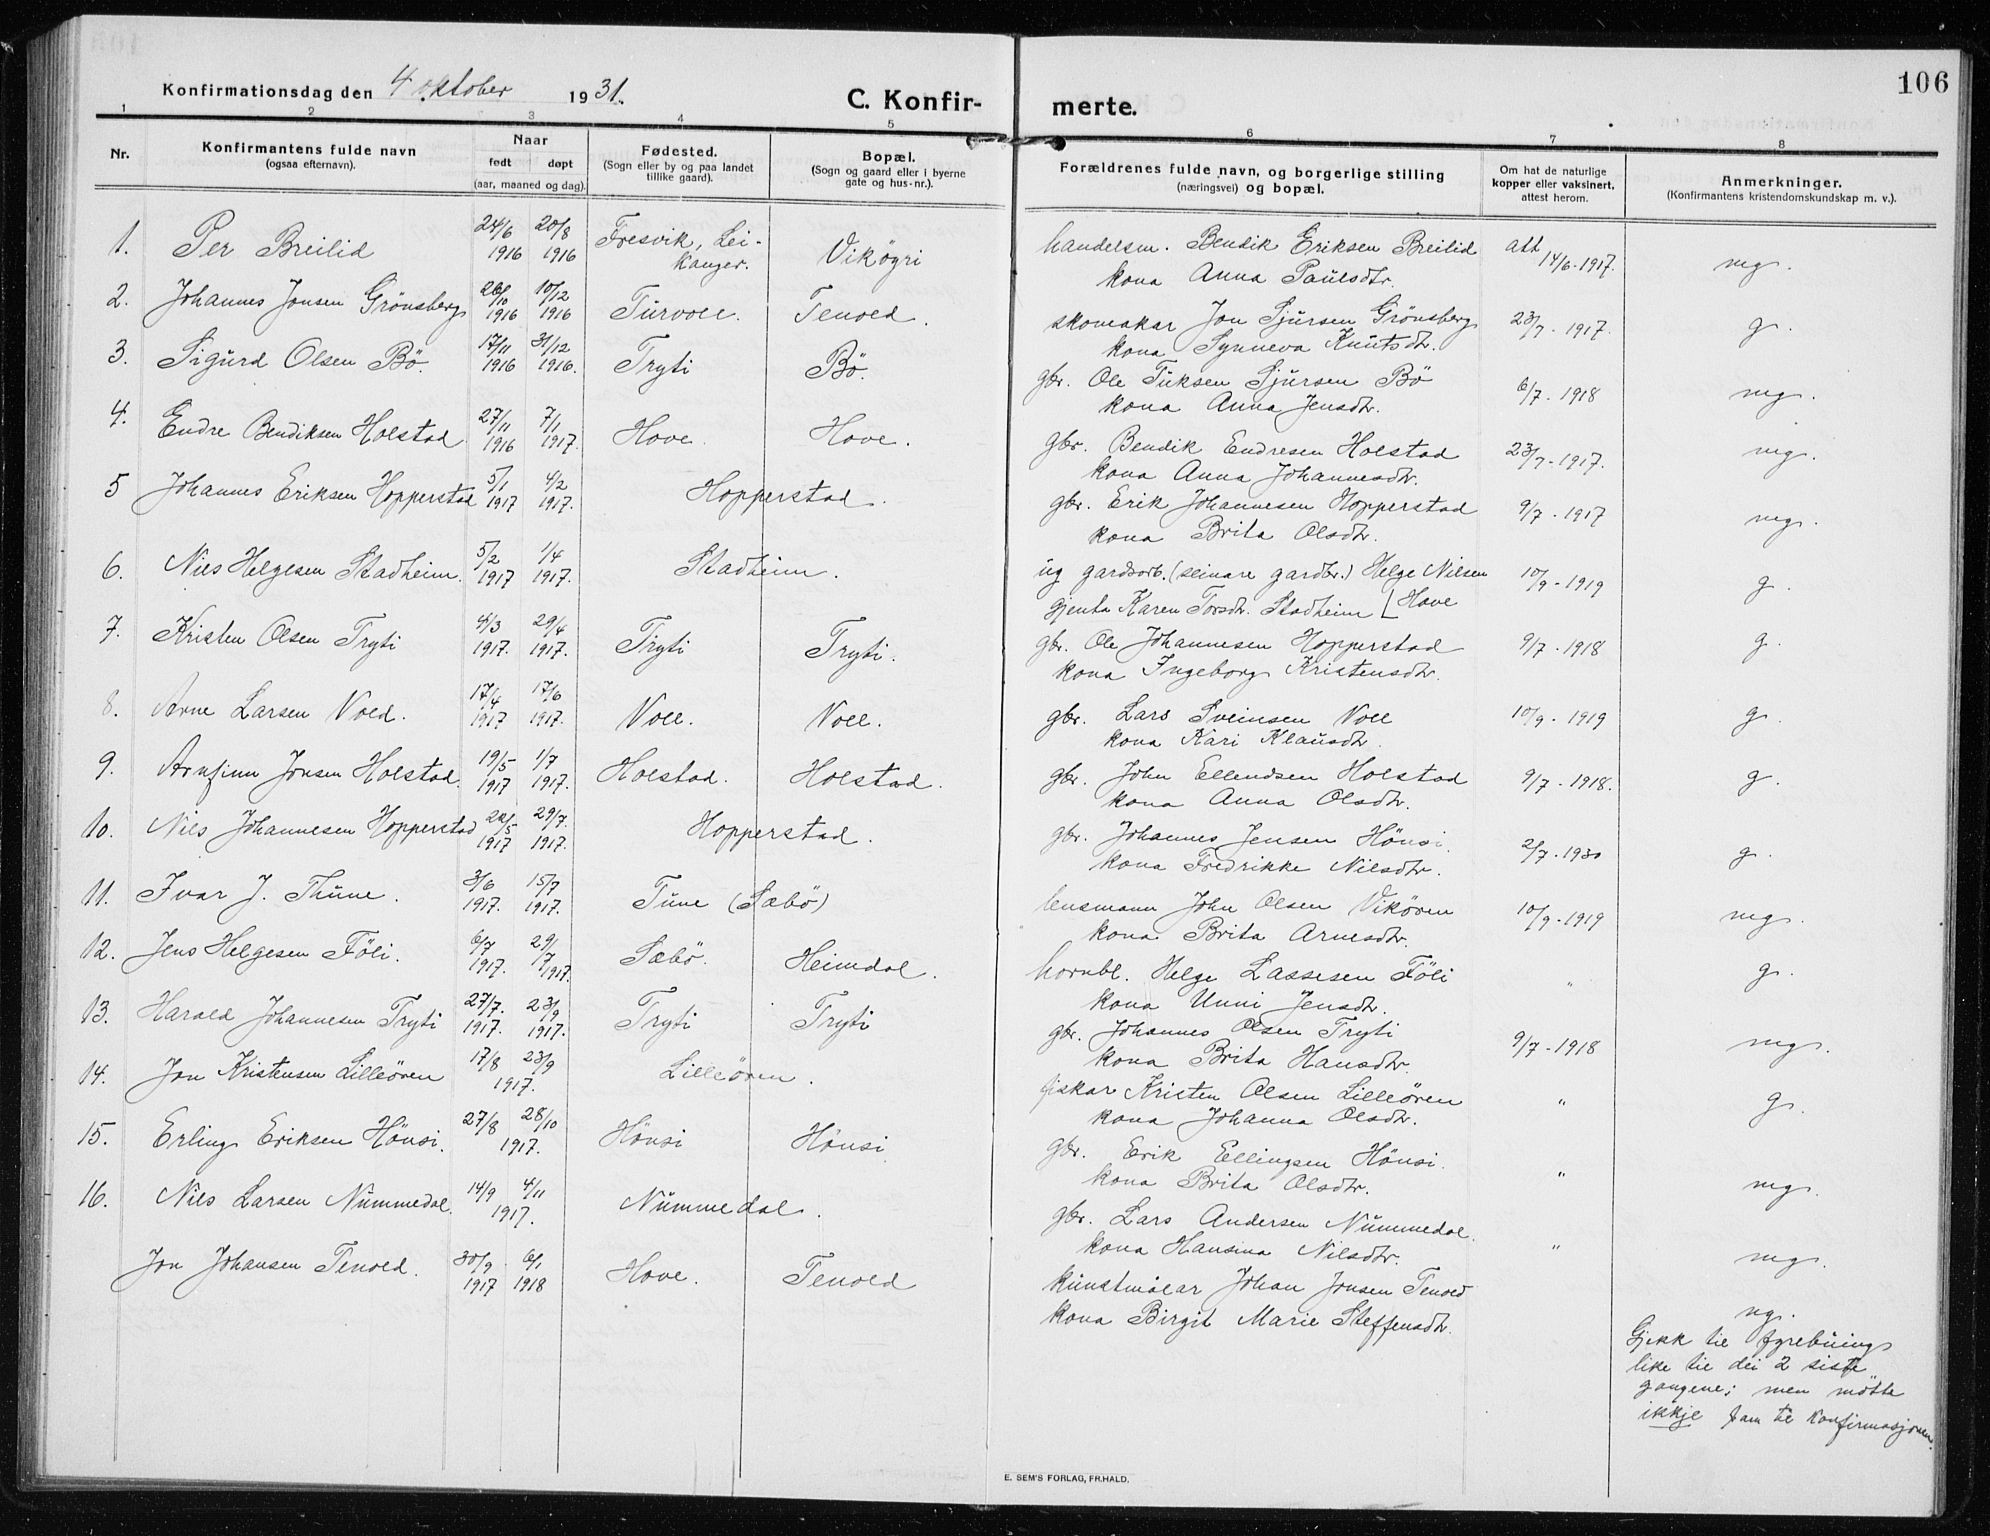 106
Konfirmationsdag den 4 oktober 1931.
C. Konfirmerte.
1 2 3 4 5 6 7 8
Nr.
Konfirmantens fulde navn
(ogsaa efternavn).
Naar
født døpt
(aar, maaned og dag).
Fødested.
(Sogn eller by og paa landet
tillike gaard).
Bopæl.
(Sogn og gaard eller i byerne
gate og hus-nr.).
Forældrenes fulde navn, og borgerlige stilling
(næringsvei) og bopæl.
Om hat de naturlige
kopper eller vaksinert,
attest herom.
Anmerkninger.
(Konfirmantens kristendomskundskap m. v.).
1. Per Breilid 24/6 1916 20/8 1916 Fresvik, Leikanger. Vikøyri handelsm. Bendik Eriksen Breilid att 14/6-1917. mg.
kona Anna Paulsdtr.
2. Johannes Jonsen Grönsberg 26/10 1916 10/12 1916 Turvoll. Tenold. skomakar Jon Sjursen Grönsberg 23/7-1917. g.
kona Synneva Knutsdtr.
3. Sigurd Olsen Bö. 17/11 1916 31/12 1916. Tryti Bö. gbr. Ole Tuksen Sjursen Bö 6/7-1918 mg.
kona Anna Jensdtr.
4. Endre Bendiksen Holstad 27/11 1916 7/1 1917. Hove. Hove. gbr. Bendik Endresen Holstad 23/7-1917. mg.
kona Anna Johannesdtr.
5 Johannes Eriksen Hopperstad 5/1 1917 4/2 1917. Hopperstad. gbr. Erik Johannesen Hopperstad 9/7-1917 mg.
kona Brita Olsdtr.
6. Nils Helgesen Stadheim. 5/2 1917 1/4 1917. Stadheim. ug gardsarb. (seinare gardbr.) Helge Nilsen 10/9-1919 g.
gjenta Karen Torsdtr. Stadheim [Hove
7. Kristen Olsen Tryti 4/3 1917. 29/4 1917. Tryti Tryti. gbr. Ole Johannesen Hopperstad 9/7-1918 g.
kona Ingeborg Kristensdtr.
8. Arne Larsen Vold. 17/4 1917 17/6 1917. Voll. Voll. gbr. Lars Sveinsen Voll 10/9-1919 g.
kona Kari Klausdtr.
9. Arnfinn Jonsen Holstad. 19/5 1917 1/7 1917. Holstad. Holstad. gbr. John Ellendsen Holstad 9/7-1918. g.
kona Anna Olsdtr.
10. Nils Johannesen Hopperstad 22/5 1917 29/7. 1917. Hopperstad. gbr. Johannes Jensen Hönsi. 2/7-1930 g.
kona Fredrikke Nilsdtr.
11. Ivar J. Thune. 3/6 1917. 15/7 1917. Tune (Sæbö) lensmann John Olsen Vikören 10/9-1919 mg.
kona Brita Arnesdtr.
12. Jens Helgesen Föli. 6/7 1917. 29/7 1917. Sæbö. Heimdal. hornbl. Helge Lassesen Föli " g.
kona Unni Jensdtr.
13. Harald Johannesen Tryti 27/7. 1917. 23/9 1917. Tryti Tryti gbr. Johannes Olsen Tryti 9/7-1918 mg.
kona Brita Hansdtr.
14. Jon Kristensen Lilleören 17/8 23/9 1917. Lilleören. fiskar Kristen Olsen Lilleören " g.
kona Johanna Olsdtr.
15. Erling Eriksen Hönsi. 27/8 28/10 1917. Hönsi Hönsi gbr. Erik Ellingsen Hönsi. " mg.
kona Brita Olsdtr.
16. Nils Larsen Nummedal. 14/9 4/11 1917. Nummedal. gbr. Lars Andersen Nummedal. " mg.
kona Hansina Nilsdtr.
Jon Johansen Tenold. 30/9 1917 6/1 1918 Hove. Tenold kunstmålar Johan Jonsen Tenold ng.
kona Birgit Marie Steffensdtr.
Gjekk til fyrebuing
like til dei 2 siste
gangene; men møtte
ikkje fram til konfirmasjonen.
E. SEM'S FORLAG, FR.HALD.